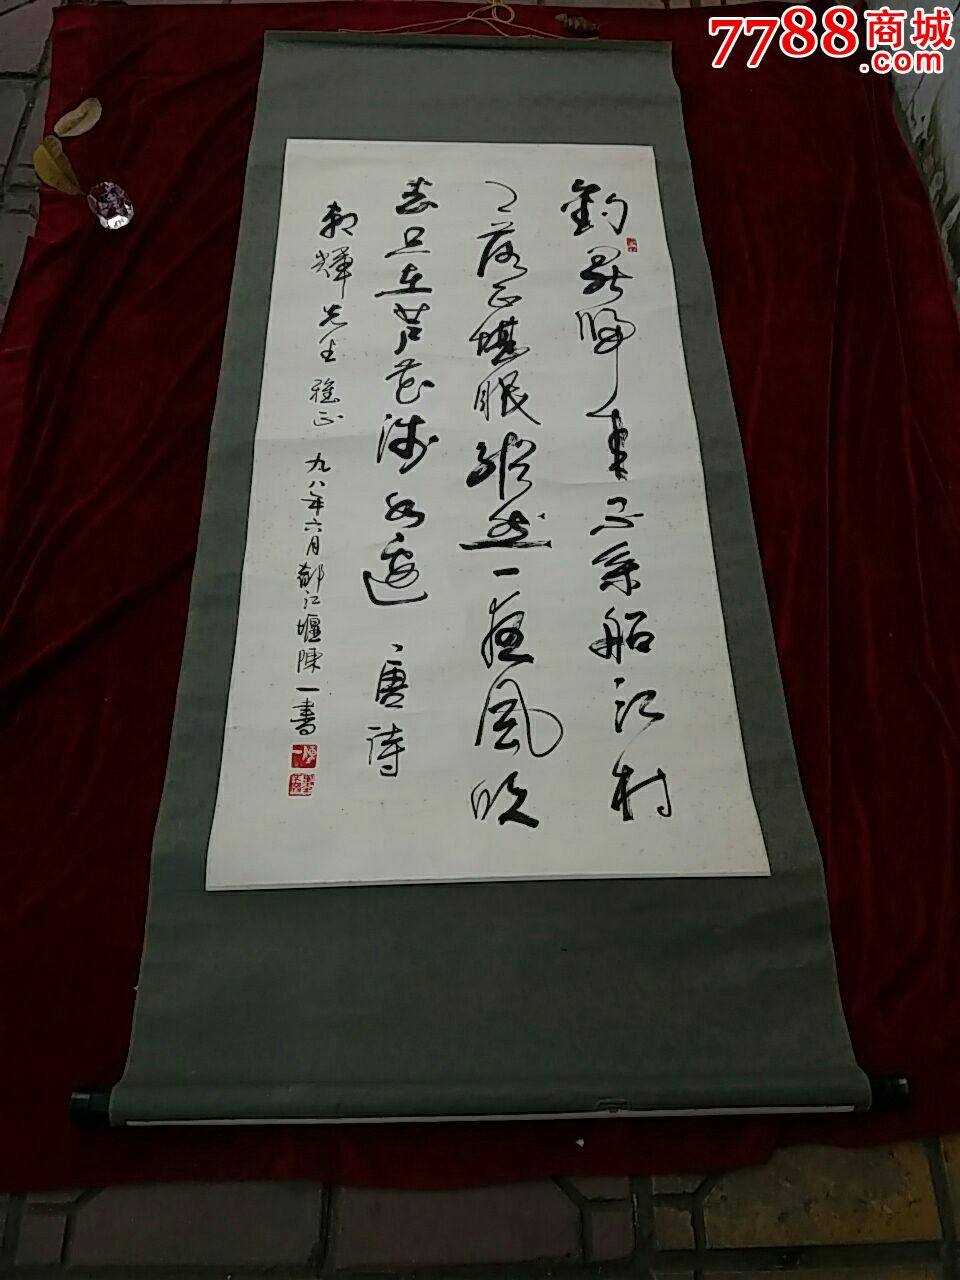 7788商城
.com
釣罷歸来不系船江村
月落正堪眠縱然一夜風吹
去只在芦花浅水邊 唐詩
朝輝先生雅正 九八年六月都江堰陳一書